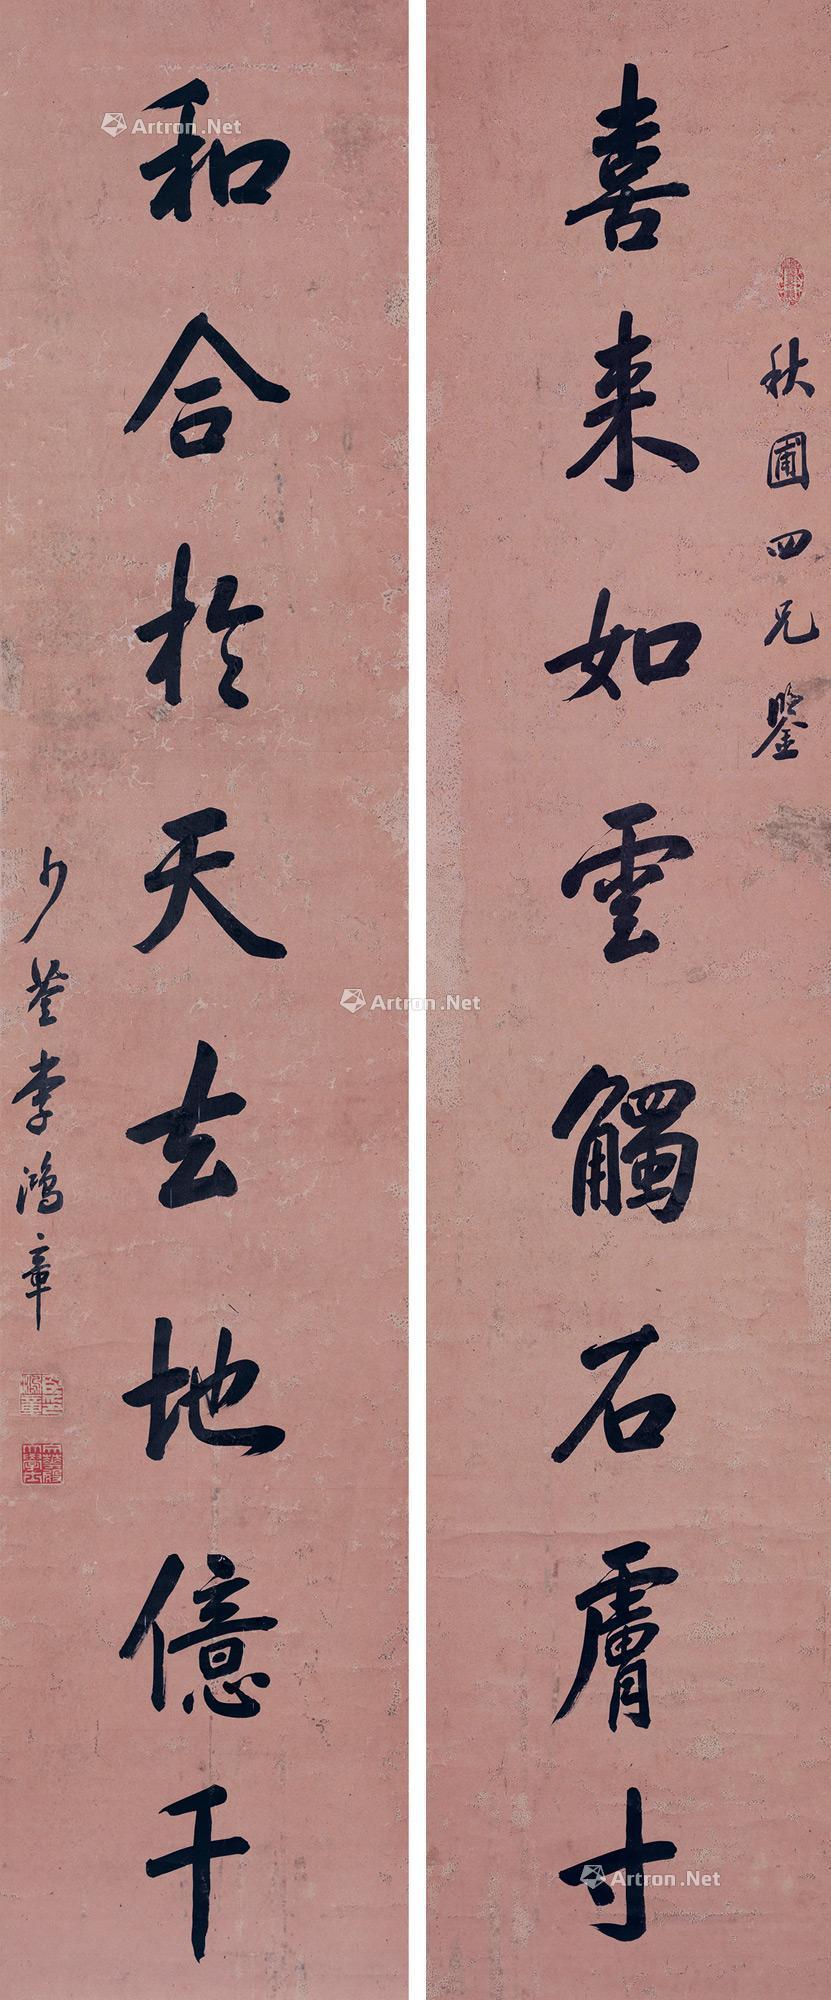 秋圃四兄鑒
喜来如雲觸石膚寸
和合於天去地億千
少荃李鴻章
Artron.Net
Artron.Net
Artron.Net